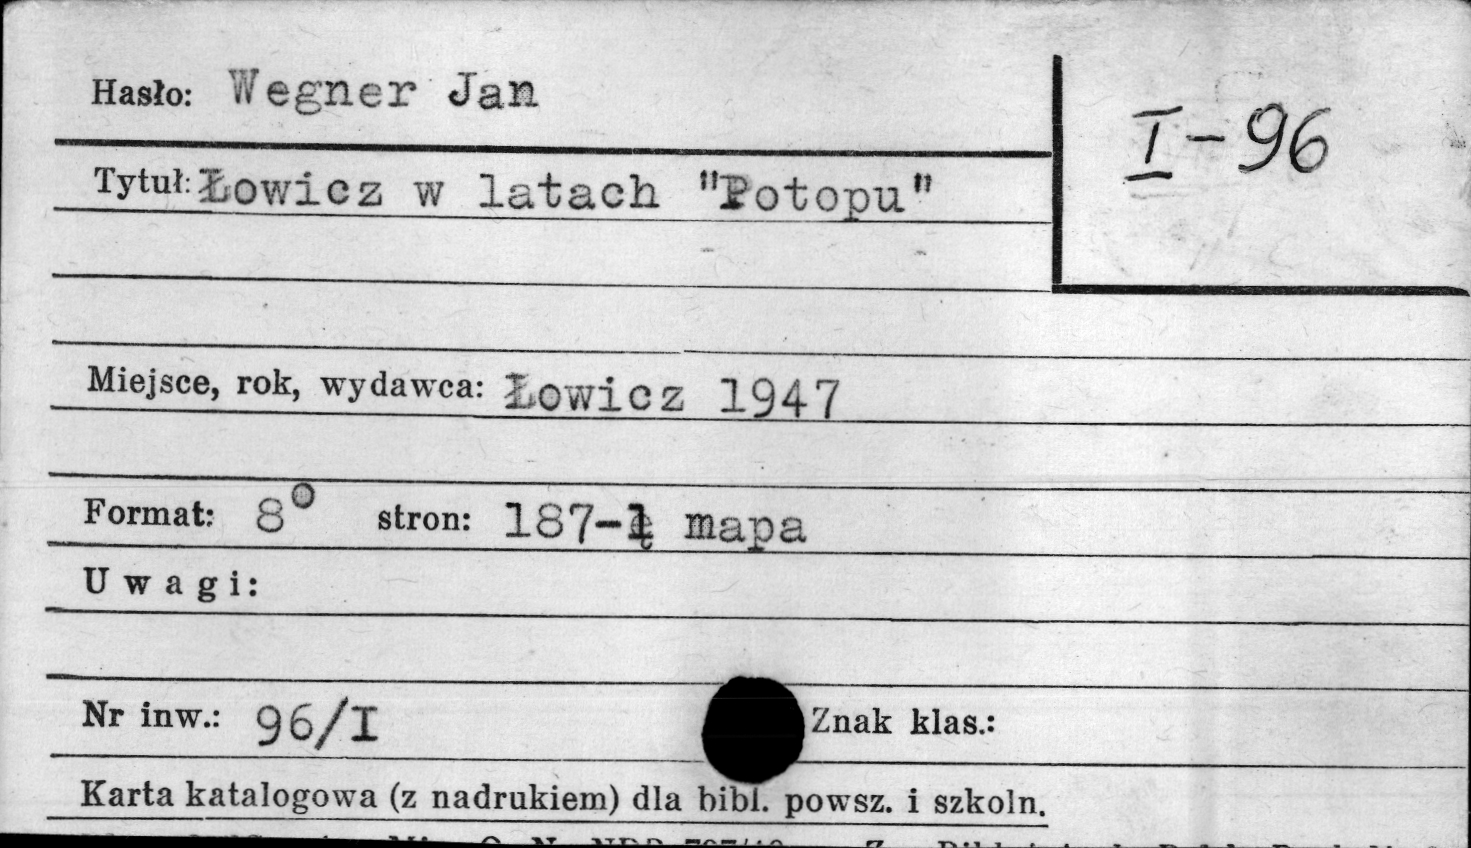 Hasło: Wegner Jan
I-96
Tytuł: Łowicz w latach "Potopu"
Miejsce, rok, wydawca: Łowicz 1947
Format: 8° stron: 187-1 mapa
Uwagi:
Nr inw.: 96/I Znak klas.:
Karta katalogowa (z nadrukiem) dla bibl. powsz. i szkoln.